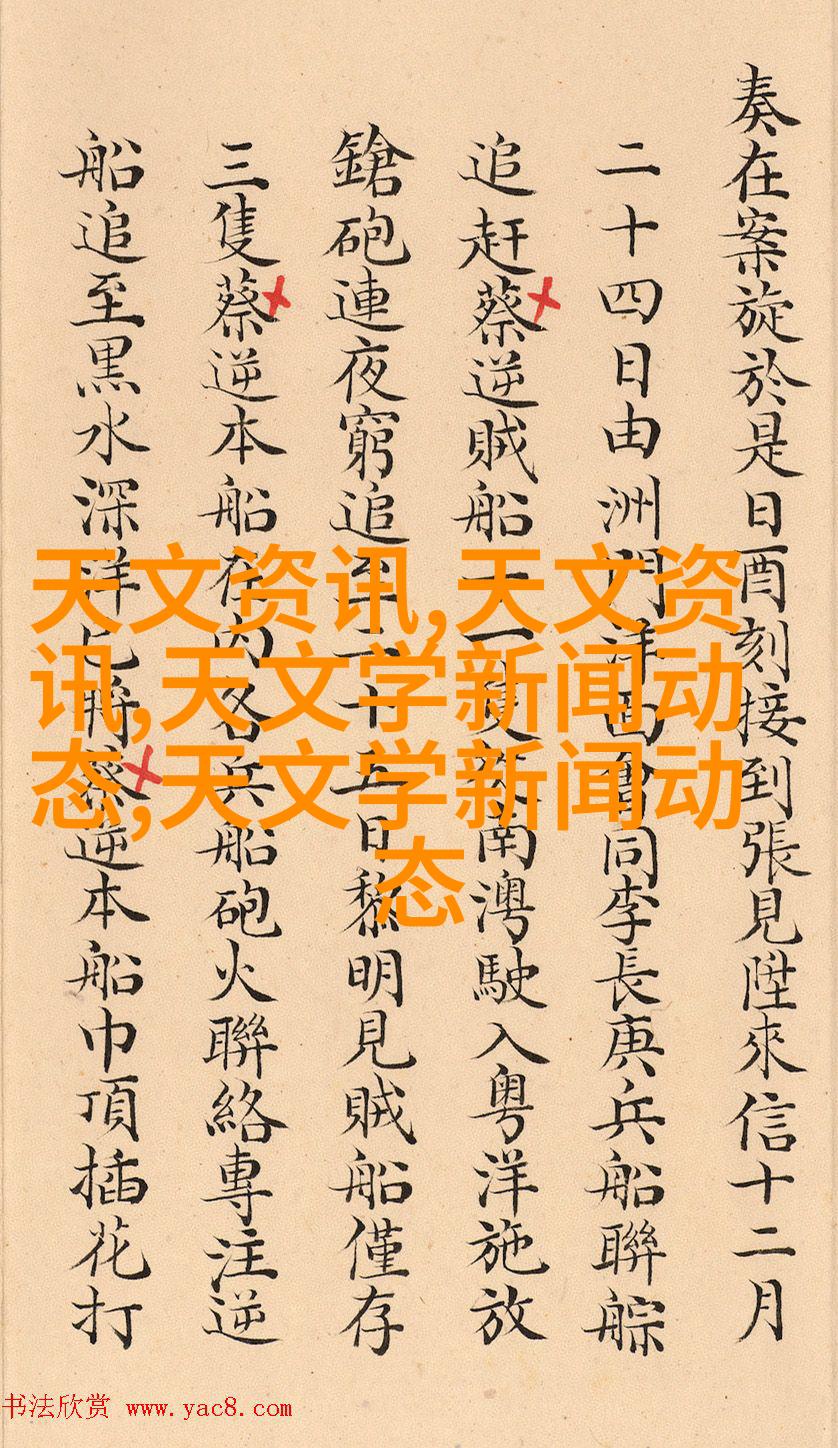 奏在案旋於是日酉刻接到張見陞來信十二月
二十四日由洲門洋面會同李長庚兵船聯䑸
追赶蔡逆賊船十一隻從南澳駛入粤洋施放
鎗砲連夜窮追至二十五日黎明見賊船僅存
三隻蔡逆本船在内各兵船砲火聯絡專注逆
船追至黒水深洋已將蔡逆本船巾頂插花打
天文资讯,天文资
讯,天文学新闻动
态,天文学新闻动
态
书法欣赏 www.yac8.com